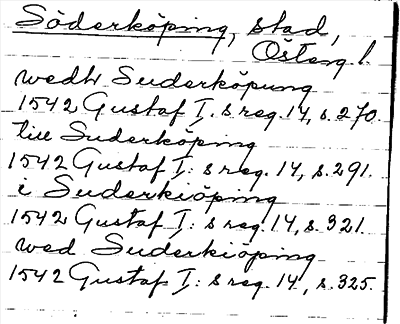 Söderköping, stad,
Österg l.
wedh Suderköpung
1542 Gustaf I. s reg. 14, s. 270.
till Suderköping
1542 Gustaf I: s reg. 14, s. 291.
i Suderkiöping
1542 Gustaf I: s reg. 14, s. 321.
wed Suderkiöping
1542 Gustaf I: s reg. 14, s. 325.